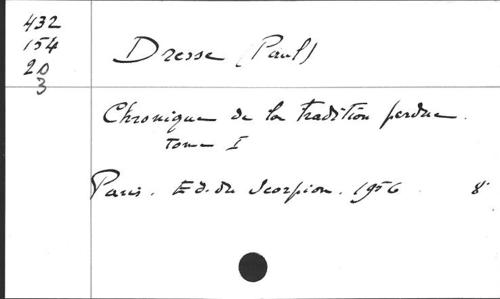 432
154
20
3
Dresse (Paul)
Chronique de la tradition perdue.
Tome I
Paris. Ed. du Scorpion. 1956 8°